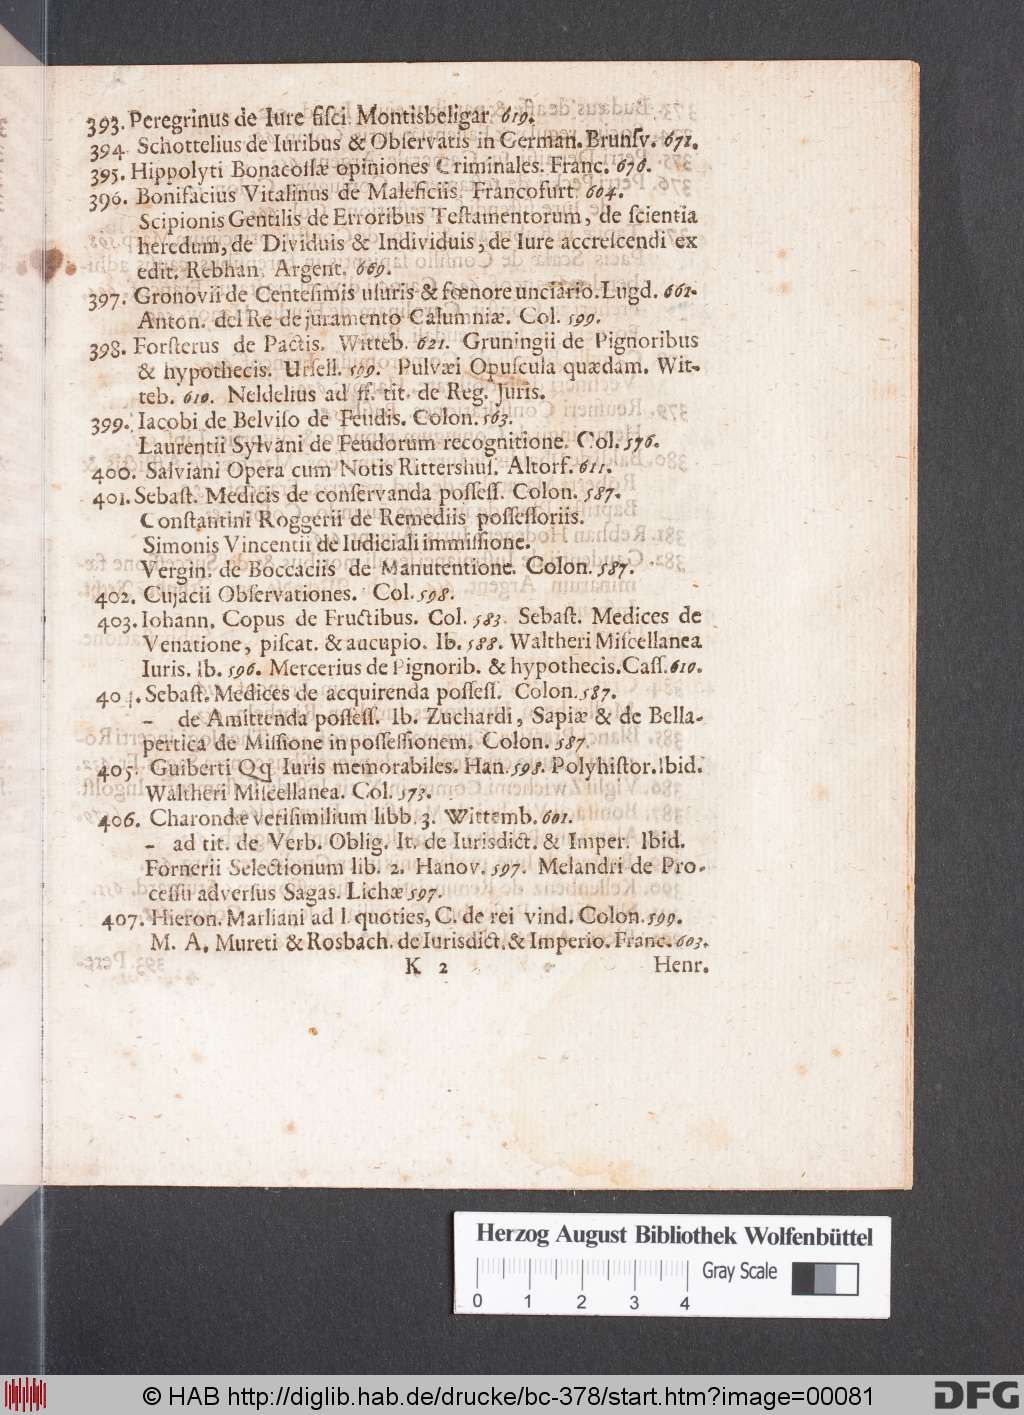 393. Peregrinus de Iure fisci Montisbeligar. 619.
394. Schottelius de Iuribus & Obſervatis in German. Brunſv. 671.
395. Hippolyti Bonacoſſæ opiniones Criminales. Franc. 670.
396. Bonifacius Vitalinus de Maleficiis. Francofurt. 604.
Scipionis Gentilis de Erroribus Teſtamentorum, de ſcientia
heredum, de Dividuis & Individuis, de Iure accreſcendi ex
edit. Rebhan. Argent. 669.
397. Gronovii de Centeſimis uſuris & fœnore unciario. Lugd. 661.
Anton. del Re de juramento Calumniæ. Col. 599.
398. Forſterus de Pactis. Witteb. 621. Gruningii de Pignoribus
& hypothecis. Urſell. 599. Pulvæi Opuſcula quædam. Wit-
teb. 610. Neldelius ad ff. tit. de Reg. Juris.
399. Iacobi de Belviſo de Feudis. Colon. 563.
Laurentii Sylvani de Feudorum recognitione. Col. 576.
400. Salviani Opera cum Notis Rittershuſ. Altorf. 611.
401. Sebaſt. Medicis de conſervanda poſſeſſ. Colon. 587.
Conſtantini Roggerii de Remediis poſſeſſoriis.
Simonis Vincentii de Iudiciali immiſſione.
Vergin. de Boccaciis de Manutentione. Colon. 587.
402. Cujacii Obſervationes. Col. 598.
403. Iohann. Copus de Fructibus. Col. 583. Sebaſt. Medices de
Venatione, piſcat. & aucupio. Ib. 588. Waltheri Miſcellanea
Iuris. Ib. 596. Mercerius de Pignorib. & hypothecis. Caſſ. 610.
404. Sebaſt. Medices de acquirenda poſſeſſ. Colon. 587.
- de Amittenda poſſeſſ. Ib. Zuchardi, Sapiæ & de Bella-
pertica de Miſſione in poſſeſſionem. Colon. 587.
405. Guiberti Qq Iuris memorabiles. Han. 598. Polyhiſtor. Ibid.
Waltheri Miſcellanea. Col. 573.
406. Charondæ veriſimilium libb. 3. Wittemb. 601.
- ad tit. de Verb. Oblig. It. de Iurisdict. & Imper. Ibid.
Fornerii Selectionum lib. 2. Hanov. 597. Melandri de Pro-
ceſſu adverſus Sagas. Lichæ 597.
407. Hieron. Marliani ad l. quoties, C. de rei vind. Colon. 599.
M. A. Mureti & Rosbach. de Iurisdict. & Imperio. Franc. 603.
K 2 Henr.
Herzog August Bibliothek Wolfenbüttel
Gray Scale
0 1 2 3 4
© HAB http://diglib.hab.de/drucke/bc-378/start.htm?image=00081
DFG